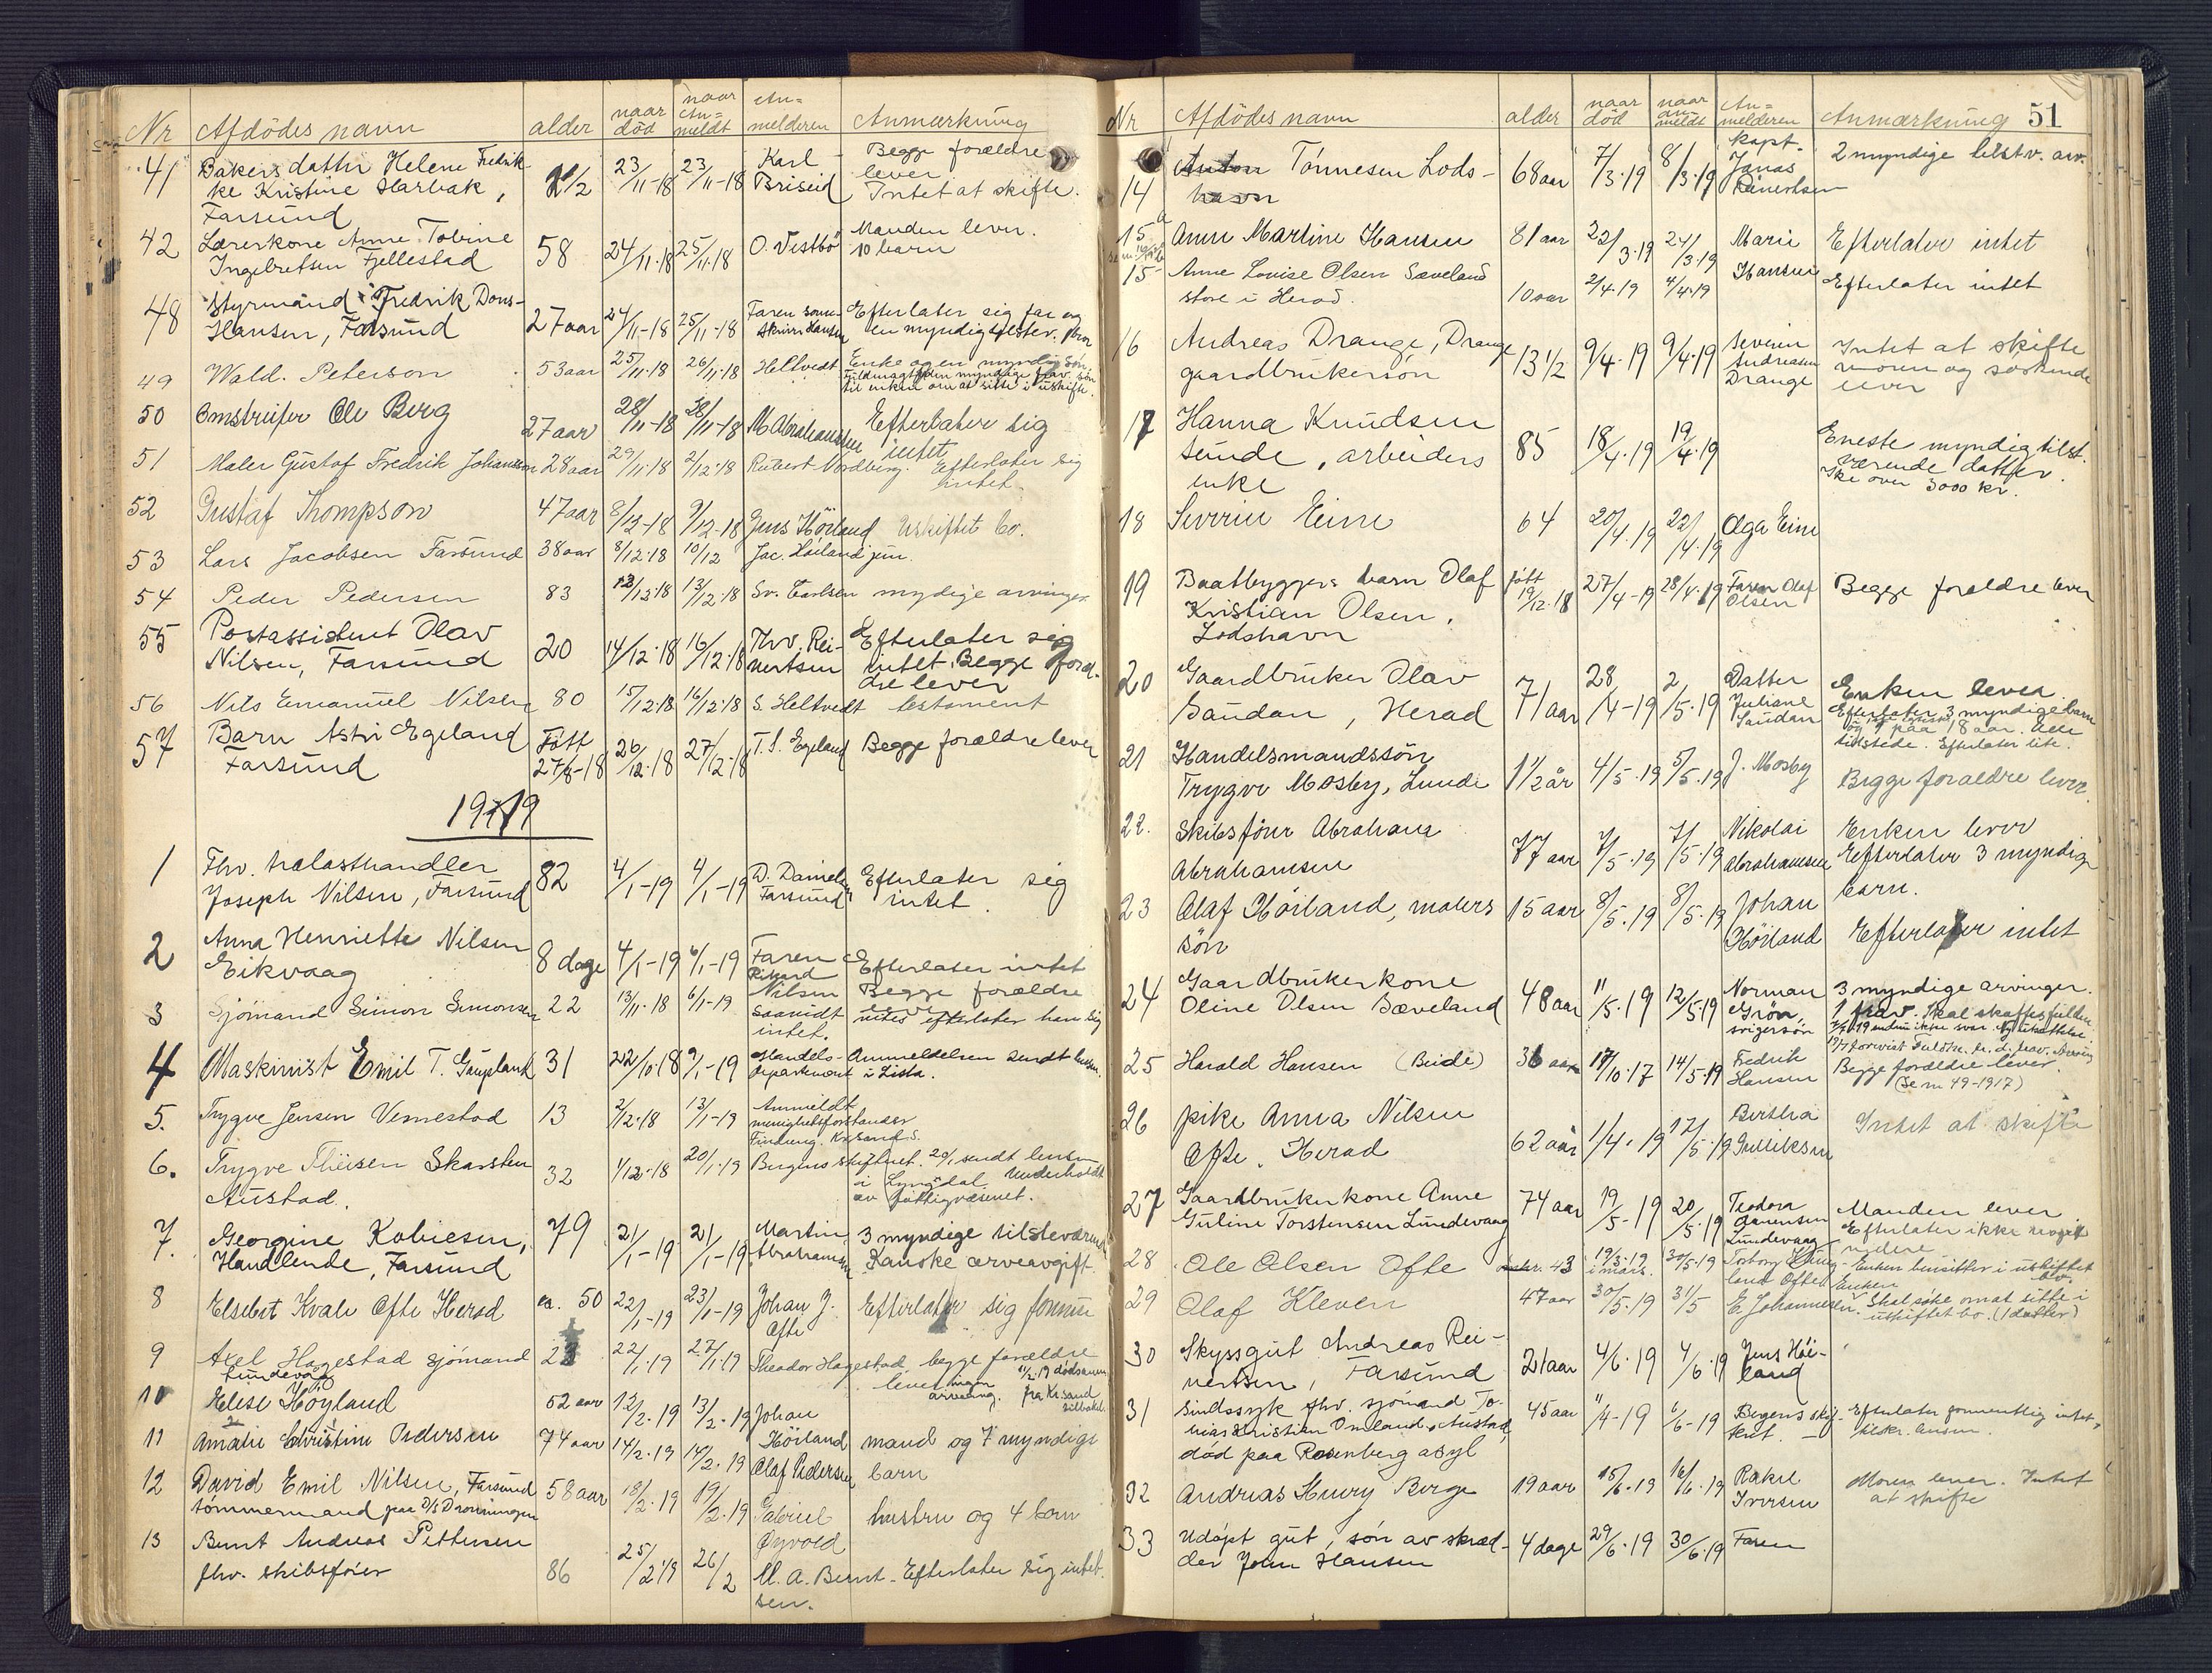 Nr Afdödes navn alder naar död naar an=meldt An=melderen Anmærkning
41 Bakers datter Helene Fredrik- 1 1/2 23/11-18 23/11-18 Karl Briseid Begge forældre
ke Kristine Harbak, lever
Farsund Intet at skifte.
42 Lærerkone Anne Tobine 58 24/11-18 25/11-18 O. Vestbö Manden lever.
Ingebretsen Fjellestad 10 barn
48 Styrmand Fredrik Dons- 27 aar 24/11-18 25/11-18 Faren Hansen Efterlater sig far og
Hansen, Farsund en myndig
49 Wald. Peterson 53 aar 25/11-18 26/11-18 Heltvedt Enke og en myndig søn.
til enken om at sitte i uskifte.
50 Omstreifer Ole Berg 27 aar 28/11-18 28/11-18 M. Abrahamsen Efterlater sig
intet
51 Maler Gustaf Fredrik Johansen 28 aar 29/11-18 2/12-18 Robert Nordberg. Efterlater sig
intet.
52 Gustaf Thompson 47 aar 8/12-18 9/12-18 Jens Höiland Uskiftet bo.
53 Lars Jacobsen Farsund 38 aar 8/12-18 10/12 Jac. Höiland jun.
54 Peder Pedersen 83 12/12-18 13/12-18 Sv. Carlsen mydige arvinger
55 Postassistent Olav 20 14/12-18 16/12-18 Thv. Rei- Efterlater sig
Nilsen, Farsund nertsen intet. Begge foræl-
dre lever
56 Nils Emanuel Nilsen 80 15/12-18 16/12-18 S. Heltvedt testament
57 Barn Astri Egeland Født 26/12-18 27/12-18 T. S. Egeland Begge forældre lever
Farsund 27/8-18
1919
1 Fhv. trælasthandler 82 4/1-19 4/1-19 D. Danielsen Efterlater sig
Joseph Nilsen, Farsund Farsund intet.
2 Anna Henriette Nilsen 8 dage 4/1-19 6/1-19 Faren Efterlater intet
Eikvaag Rikard Nilsen Begge forældre
3 Sjömand Simon Simonsen 22 13/11-18 6/1-19 saavidt vites efterlater han sig
intet.
4 Maskinist Emil T. Gaupland 31 22/10-18 9/1-19 Handels- Anmeldelsen sendt lensm.
departement i Lista.
5. Trygve Jensen Vemestad 13 2/12-18 13/1-19 Anmeldt
menighetsforstander
Krsand S.
6. Trygve Theisen Skarsten 32 1/12-18 20/1-19 Bergens skifteret. 20/1 sendt lensm.
Austad. i Lyngdal. Underholdt
av fattigvæsenet.
7. Georgine Kobiesen, 79 21/1-19 21/1-19 Martin 3 myndige tilsteværende
Handlende, Farsund Abrahamsen Kanske arveavgift
8 Elsebet Kvale Ofte Herad ca. 50 22/1-19 23/1-19 Johan J. Efterlater sig formue
Ofte
9 Axel Hagestad sjömand 23 22/1-19 27/1-19 Theodor Hagestad, begge forældre
Lundevaag lever ingen arveanm.
10 Elise Höyland 52 aar 12/2-19 13/2-19 Johan
Höiland
11 Amalie Christine Pedersen 74 aar 14/2-19 14/2-19 Olaf Pedersen mand og 7 myndige
barn
12 David Emil Nilsen, Farsund 58 aar 18/2-19 19/2-19 Gabriel hustru og 4 barn
tömmermand paa D/S Dronningen Öyvold
13 Bernt Andreas Pettersen 86 25/2-19 26/2 M. A. Bernt- Efterlater sig intet.
fhv. skibsförer sen.
51
Nr Afdödes navn alder naar död naar an=meldt An=melderen Anmærkning
14 Anton Tönnesen Lods- 68 aar 7/3-19 8/3-19 kapt. Jonas Reinertsen 2 myndige tilstv. arv.
havn
15 a Anne Martine Hansen 81 aar 22/3-19 24/3-19 Marie Efterlater intet
Hansen
15 Anne Lovise Olsen Sæveland 10 aar 2/4-19 4/4-19 Efterlater intet
store i Herad.
16 Andreas Drange, Drange 13 1/2 9/4-19 9/4-19 Severin Intet at skifte
gaardbrukersön Andreasen moren og søskende
Drange lever
17 Hanna Knudsen 85 18/4-19 19/4-19 Eneste myndig tilst.
Sunde, arbeiders værende datter.
enke Ikke over 3000 kr.
18 Severin Eime 64 20/4-19 22/4-19 Olga Eime
19 Baatbyggers barn Olaf født 27/4-19 28/4-19 Faren Olaf Begge forældre lever
Kristian Olsen, 19/12-18 Olsen
Lodshavn
20 Gaardbruker Olav 71 aar 28/4-19 2/5-19 Datter Enken lever.
Saudan, Herad Juliane Efterlater 3 myndige barn
Saudan og 1 paa 18 aar. Alle
tilstede. Efterlater lite.
21 Handelsmandssön 1 1/2 år 4/5-19 5/5-19 J. Mosby Begge forældre lever
Trygve Mosby, Lunde
22. Skibsförer Abraham 77 aar 7/5-19 7/5-19 Nikolai Enken lever
Abrahamsen Abrahamsen Efterlater 3 myndige
barn.
23 Olaf Höiland, malers 15 aar 8/5-19 8/5-19 Johan Efterlater intet
sön Höiland
24 Gaardbrukerkone 48 aar 11/5-19 12/5-19 Norman 3 myndige arvinger.
Oline Olsen Sæveland Grön, 1 frav. Skal skaffe fuldm.
svigersön
25 Harald Hansen (Beide) 36 aar 17/10-17 14/5-19 Fredrik Begge forældre lever.
Hansen (Se nr 49-1917)
26 pike Anna Nilsen 62 aar 1/4-19 12/5-19 Bertha Intet at skifte
Ofte. Herad Gulliksen
27 Gaardbrukerkone Anne 74 aar 19/5-19 20/5-19 Teodora Manden lever
Guline Torstensen Lundevaag Aanensen Efterlater ikke noget
Lundevaag videre
28 Ole Olsen Ofte 43 19/3-19 i mars. 30/5-19 Torborg Enken hensitter i uskiftet
bo.
29 Olaf Kleven 47 aar 30/5-19 31/5 E. Johannesen. Enken Skal söke om at sitte i
uskiftet bo. (1 datter)
30 Skyssgut Andreas Rei- 21 aar 4/6-19 4/6-19 Jens Höi-
nertsen, Farsund land
31 Sindssyk fhv. sjömand To- 45 aar 11/4-19 6/6-19 Bergens skif- Efterlater formentlig intet,
nias Kristian Omland, Austad, teret.
död paa Rosenberg asyl
32 Andreas Henry Berge 19 aar 15/6-19 16/6-19 Rakel Moren lever. Intet
Iversen at skifte
33 Udöpt gut, sön av skræd- 4 dage 29/6-19 30/6-19 Faren
der John Hansen